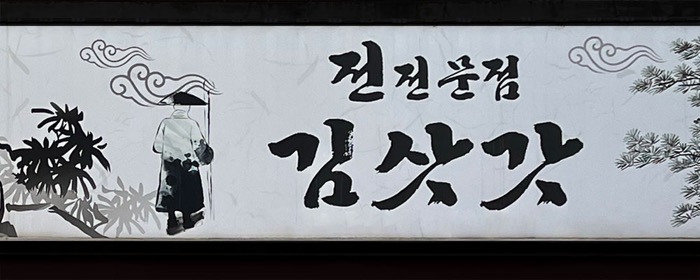 전전문점
김삿갓